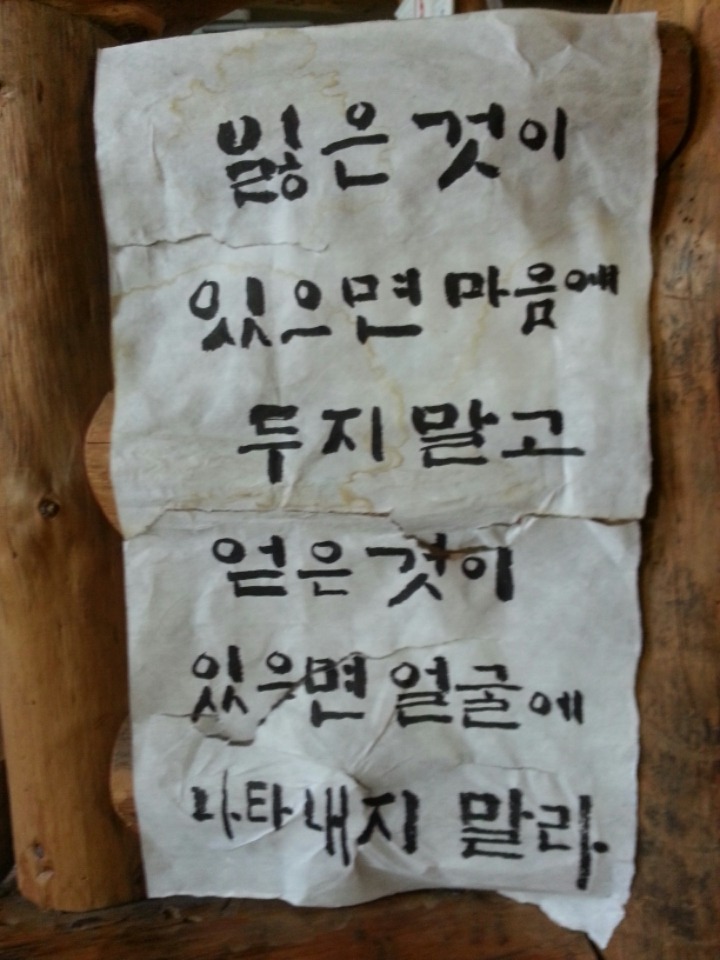 잃은 것이
있으면 마음에
두지 말고
얻은 것이
있으면 얼굴에
나타내지 말라